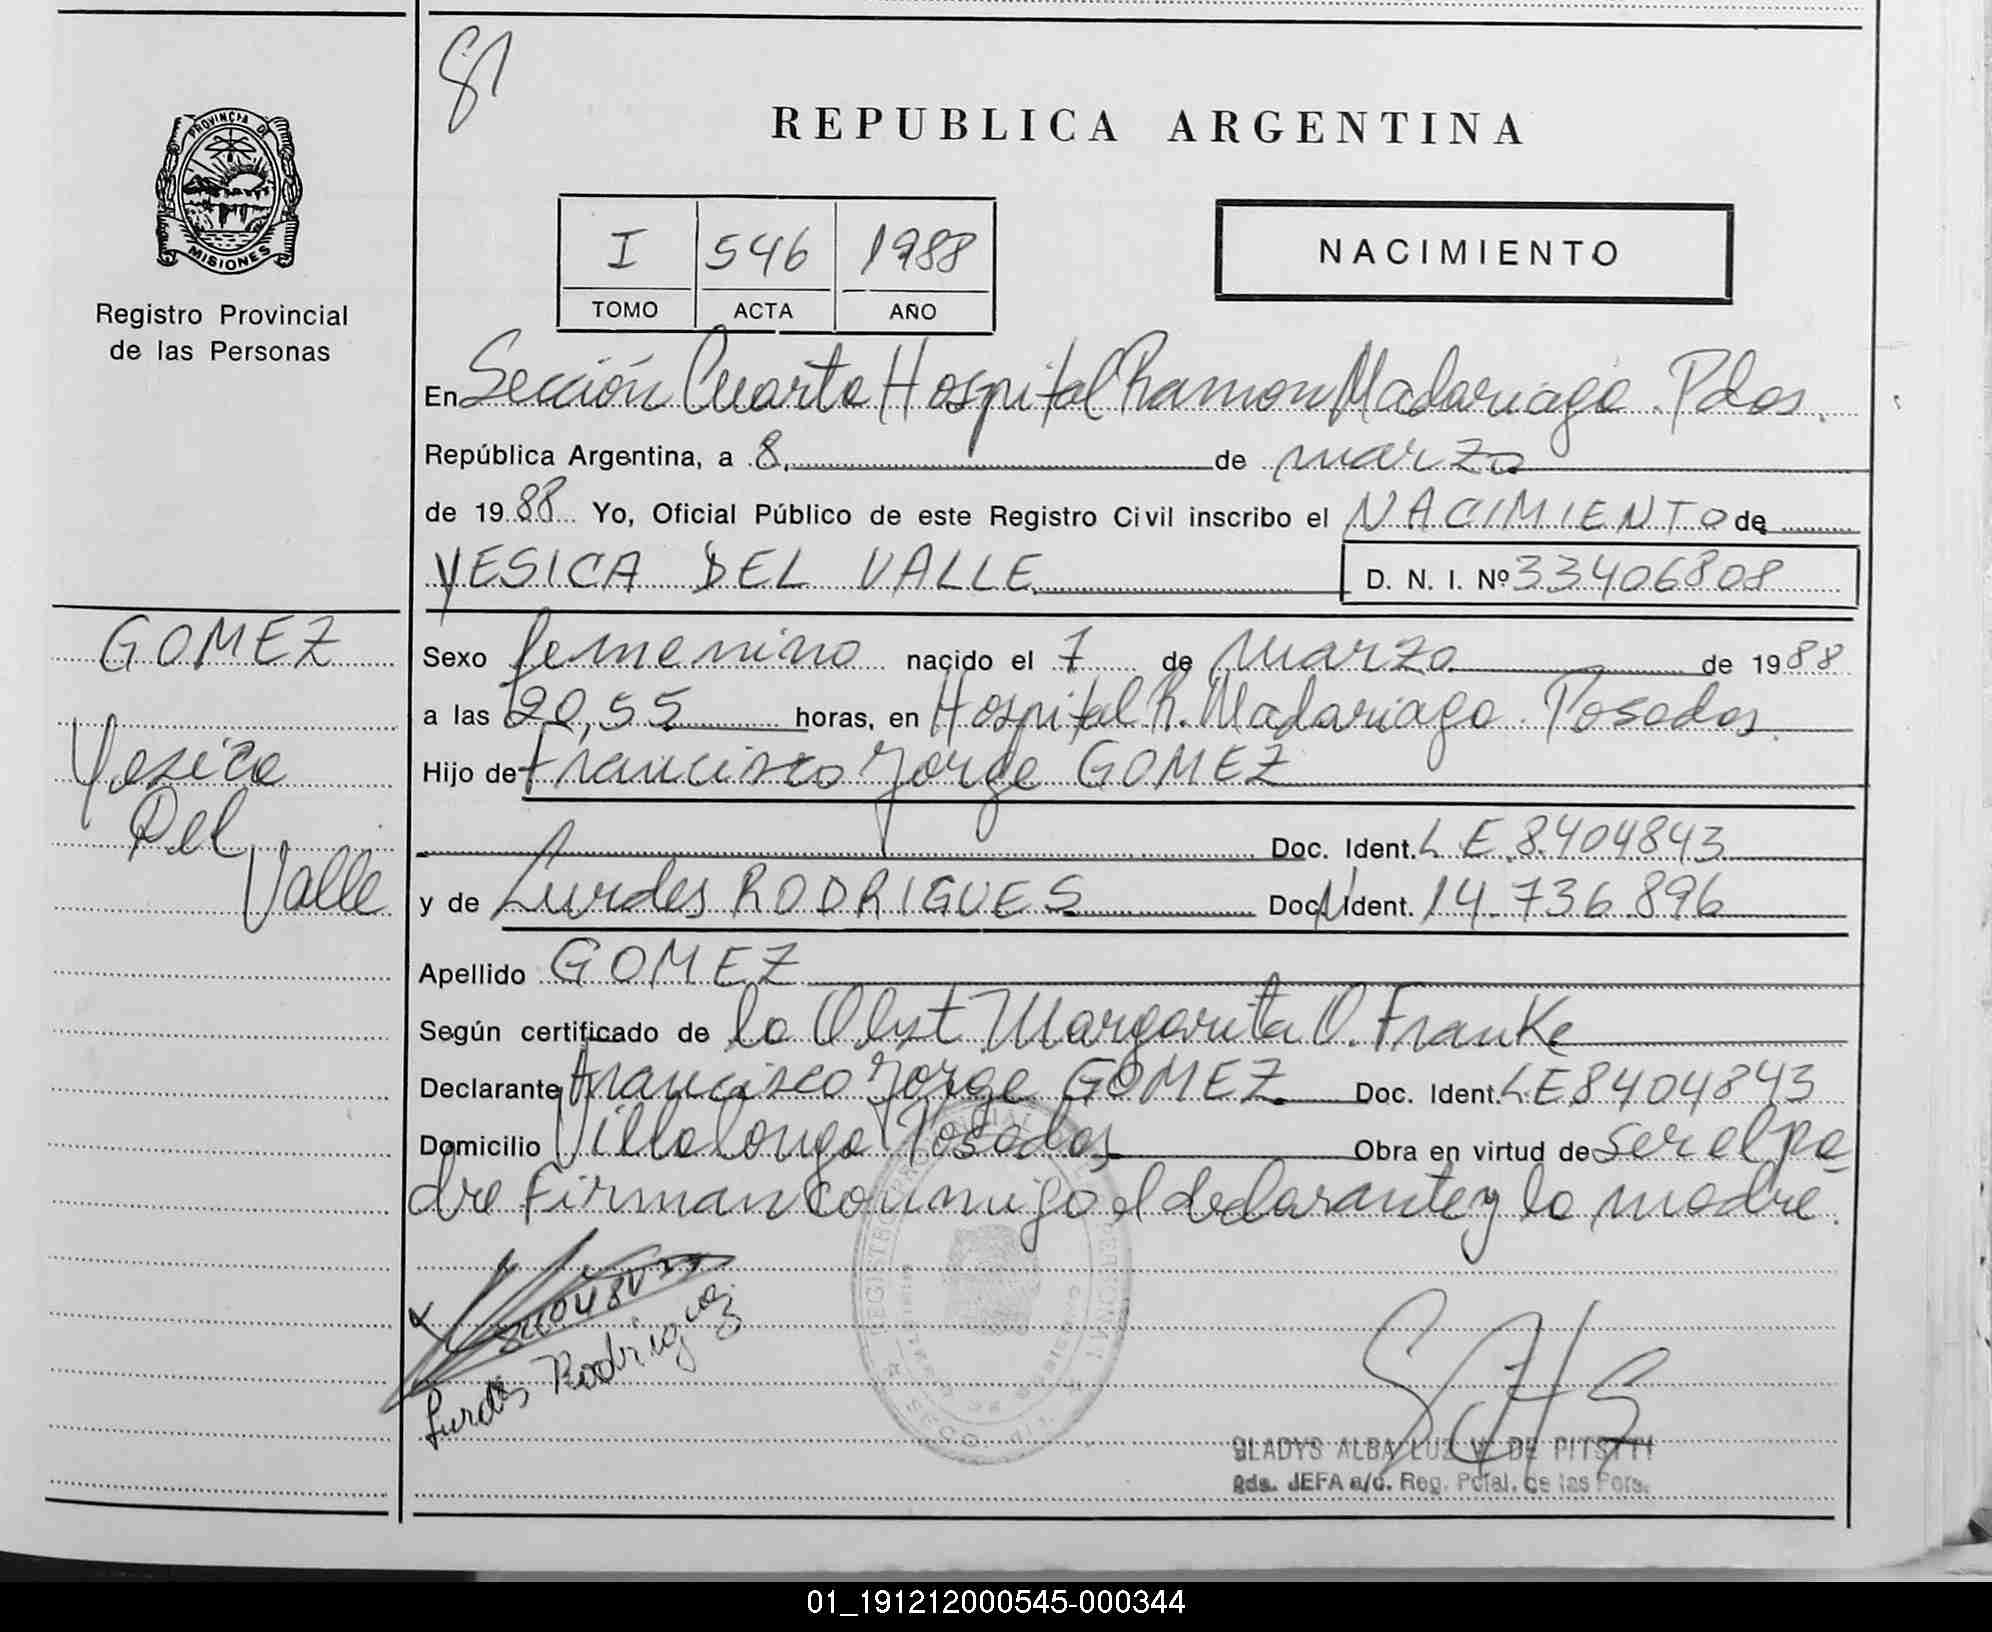 81
PROVINCIA DE
MISIONES
Registro Provincial
de las Personas
REPUBLICA ARGENTINA
I 546 1988
TOMO ACTA AÑO
NACIMIENTO
En Sección Cuarta Hospital Ramon Madariaga. Pdas.
República Argentina, a 8 de marzo
de 1988 Yo, Oficial Público de este Registro Civil inscribo el NACIMIENTO de
YESICA DEL VALLE D. N. I. Nº 33406808
GOMEZ
Yesica
Del
Valle
Sexo femenino nacido el 7 de marzo de 1988
a las 20,55 horas, en Hospital R. Madariaga. Posadas.
Hijo de Francisco Jorge GOMEZ
Doc. Ident. L E 8.404843
y de Lurdes RODRIGUES Doc. Ident. 14.736.896
Apellido GOMEZ
Según certificado de la Obst Margarita O. Franke
Declarante Francisco Jorge GOMEZ Doc. Ident. LE 8404843
Domicilio Villalonga Posadas Obra en virtud de ser el pa
dre Firman conmigo el declarante y la madre.
Lurdes Rodriguez
GLADYS ALBA LUZ V. DE PITSTTI
Pds. JEFA a/c. Reg. Pcial. de las Pers.
01_191212000545-000344